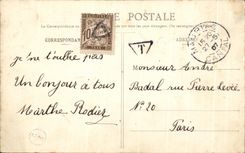 POSTALE
CORRESPONDANCE
10
T
je ne t'oublie pas
Un bonjour à tous
Marthe Rodier
Monsieur André
Badal rue Pierre Levée
N° 20
Paris